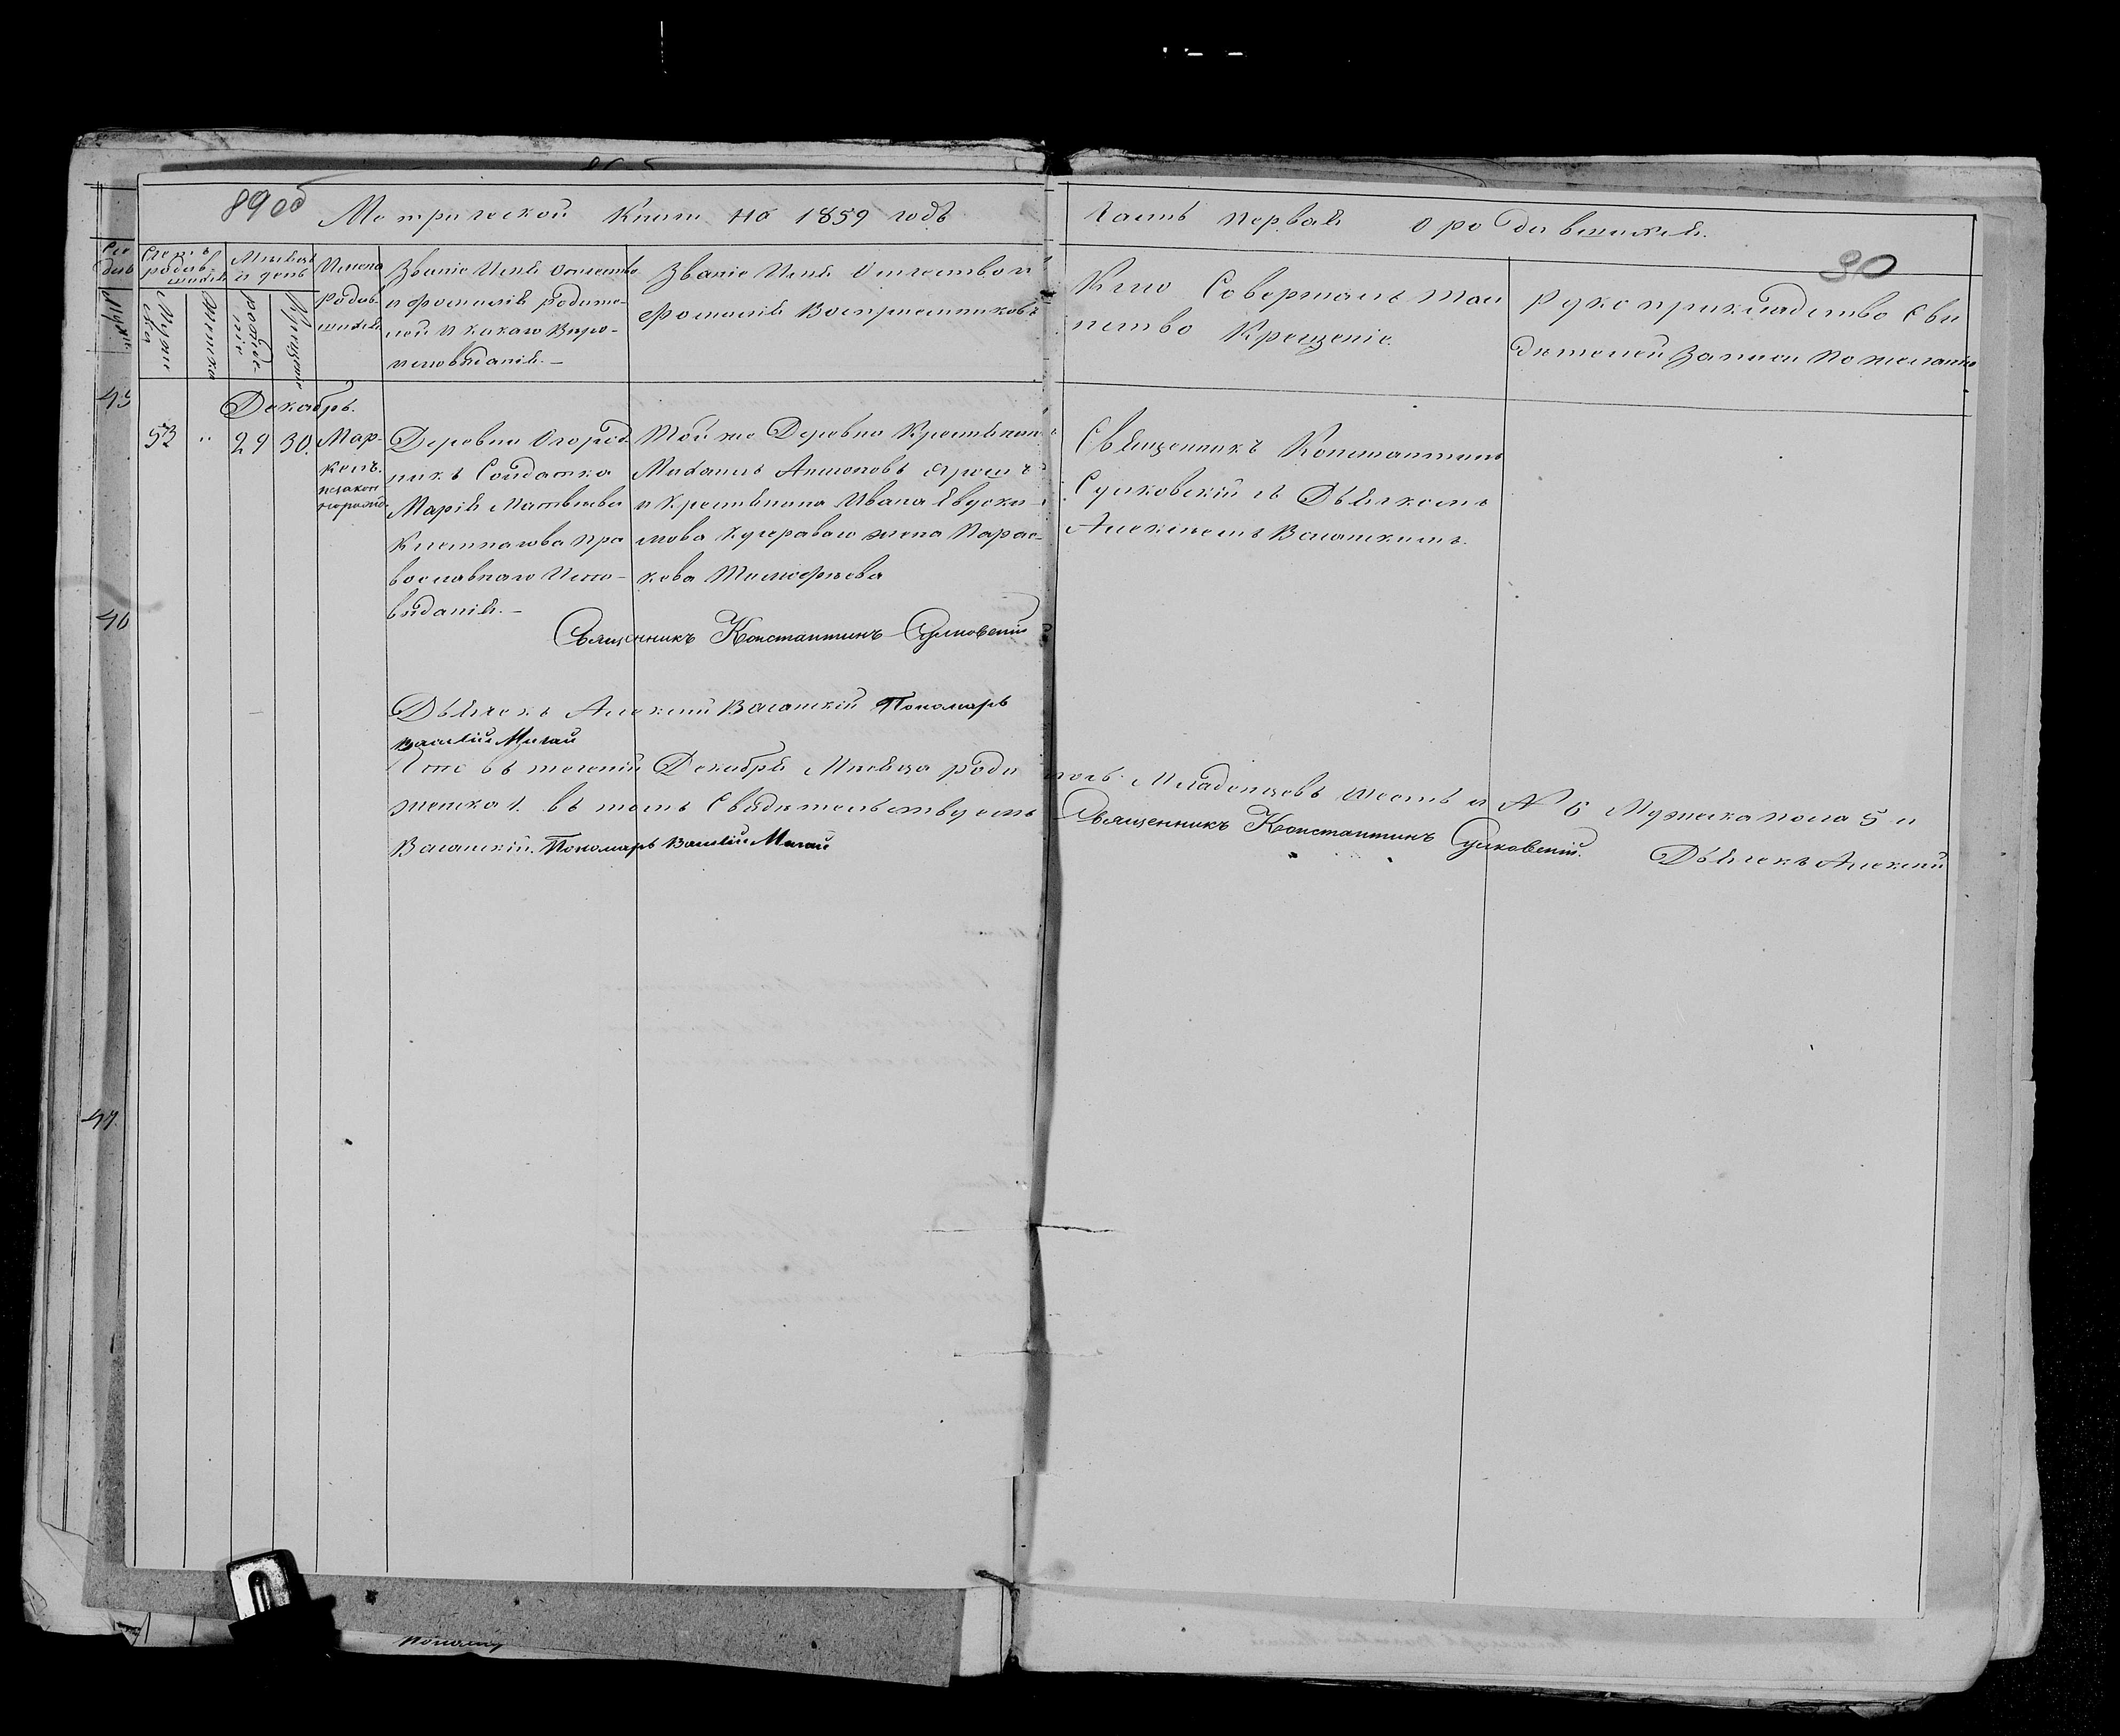 89об
Метрической Книги на 1859 годъ
Часть первая о родившихся.
90
Счетъ родив-
шихся
Мужеска
Женска
Мѣсяцъ
и день
рожде-
нія
Крещенія
Имена
родив-
шихся
Званіе Имя Отчество
и Фамилія родите-
лей и какаго Вѣро-
исповѣданія.-
Званіе Имя Отчество и
Фамилія Воспріемниковъ
Кто Совершалъ таи
нство Крещенія.
Рукоприкладство Сви
дѣтелей Записи по желанію
45
Декабрь.
53
"
29
30.
Мар-
келъ.
незакон
норожд.
Деревни Огород
никъ Солдатка
Марія Матвѣева
православнаго Испо-
вѣданія.-
Той же Деревни Крестьянинъ
Михаилъ Антоновъ Ярошъ
и Крестьянина Ивана Евдоки-
мова Кучераваго жена Парас-
кева Тимофѣева
Священникъ Константинъ
Сулковскій съ Дьячкомъ
Алексѣемъ
46
Священникъ Константинъ Сулковскій
Дьячекъ Алексѣй Пономарь
Василій
Итого въ теченіи Декабря Мѣсяца роди лось Младенцевъ шесть и № 6 Мужеска пола 5 и
женска 1. въ томъ Свидѣтельствуемъ Священникъ Константинъ Сулковскій. Дьячекъ Алексѣй
Пономарь Василій
47.